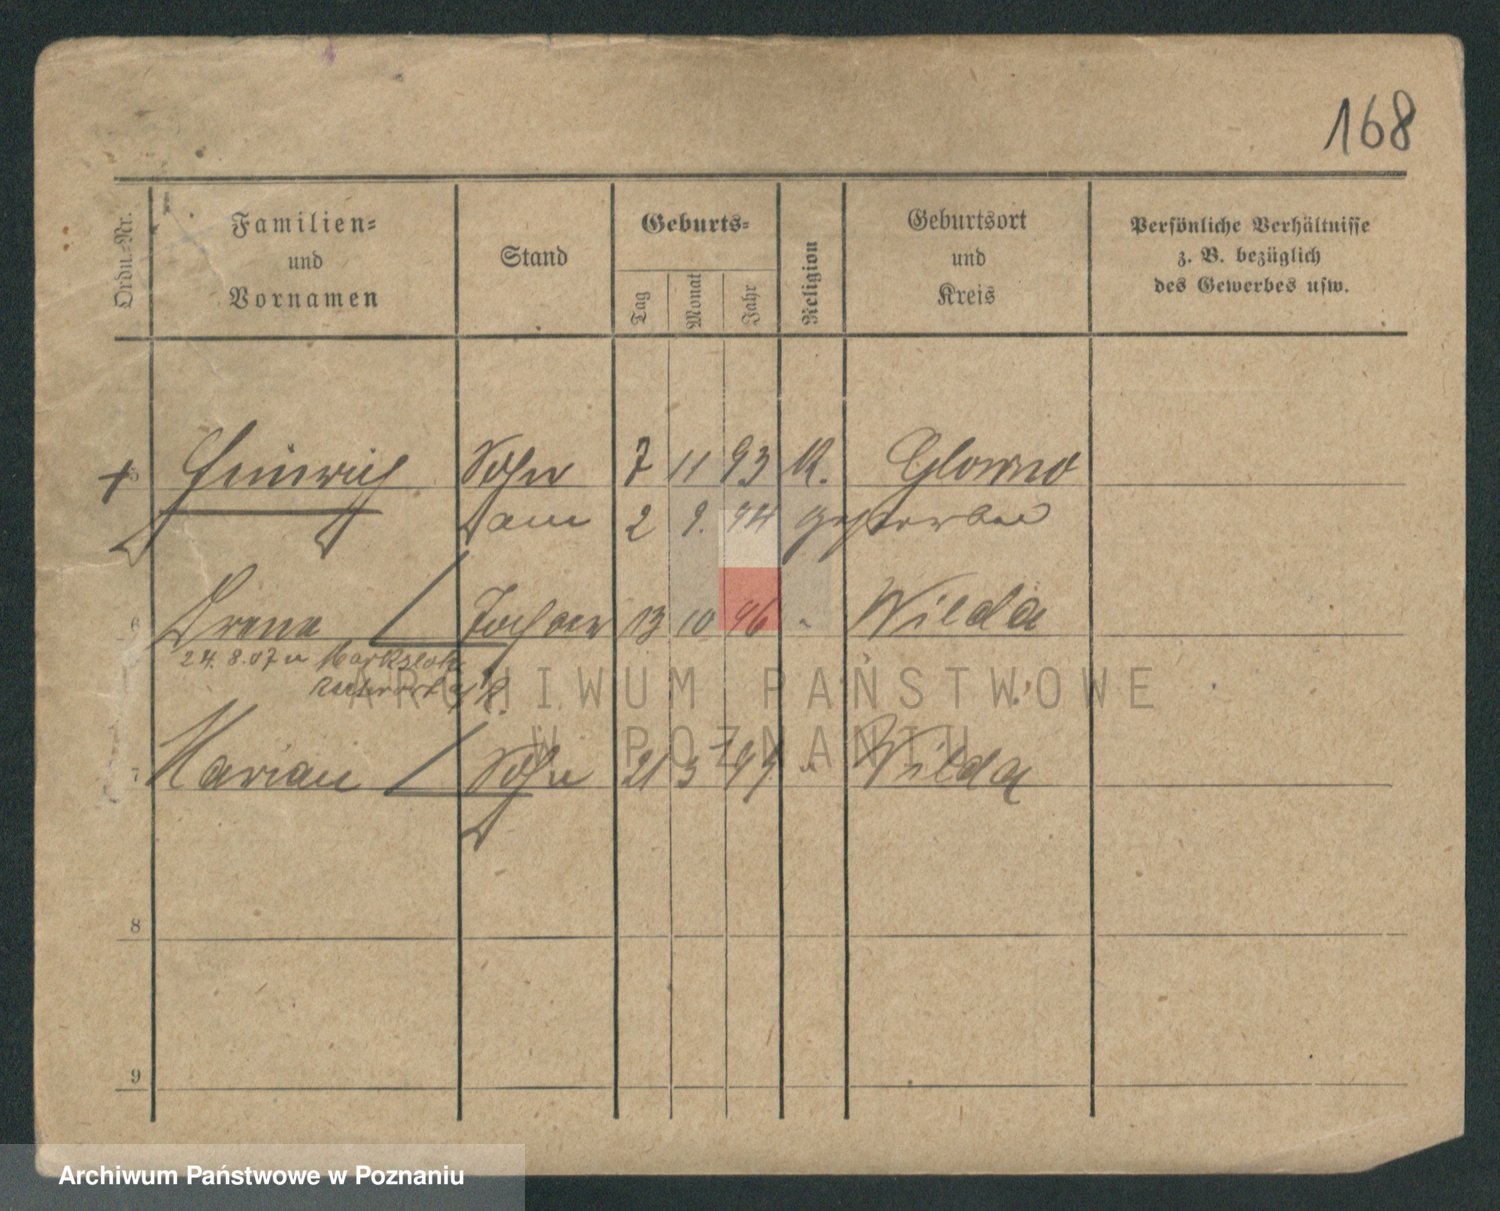 168
Ordn.-Nr.
Familien-
und
Vornamen
Stand
Geburts-
Tag
Monat
Jahr
Religion
Geburtsort
und
Kreis
Persönliche Verhältnisse
z. B. bezüglich
des Gewerbes usw.
Heinrich Sohn 7 11 93 K. Glowno
am 2 9. 94 gestorben
6 Irena Tochter 13 10 96 " Wilda
24. 8. 07 n
7 Marian Sohn 21 3 99 " Wilda
8
9
ARCHIWUM PAŃSTWOWE
W POZNANIU
Archiwum Państwowe w Poznaniu